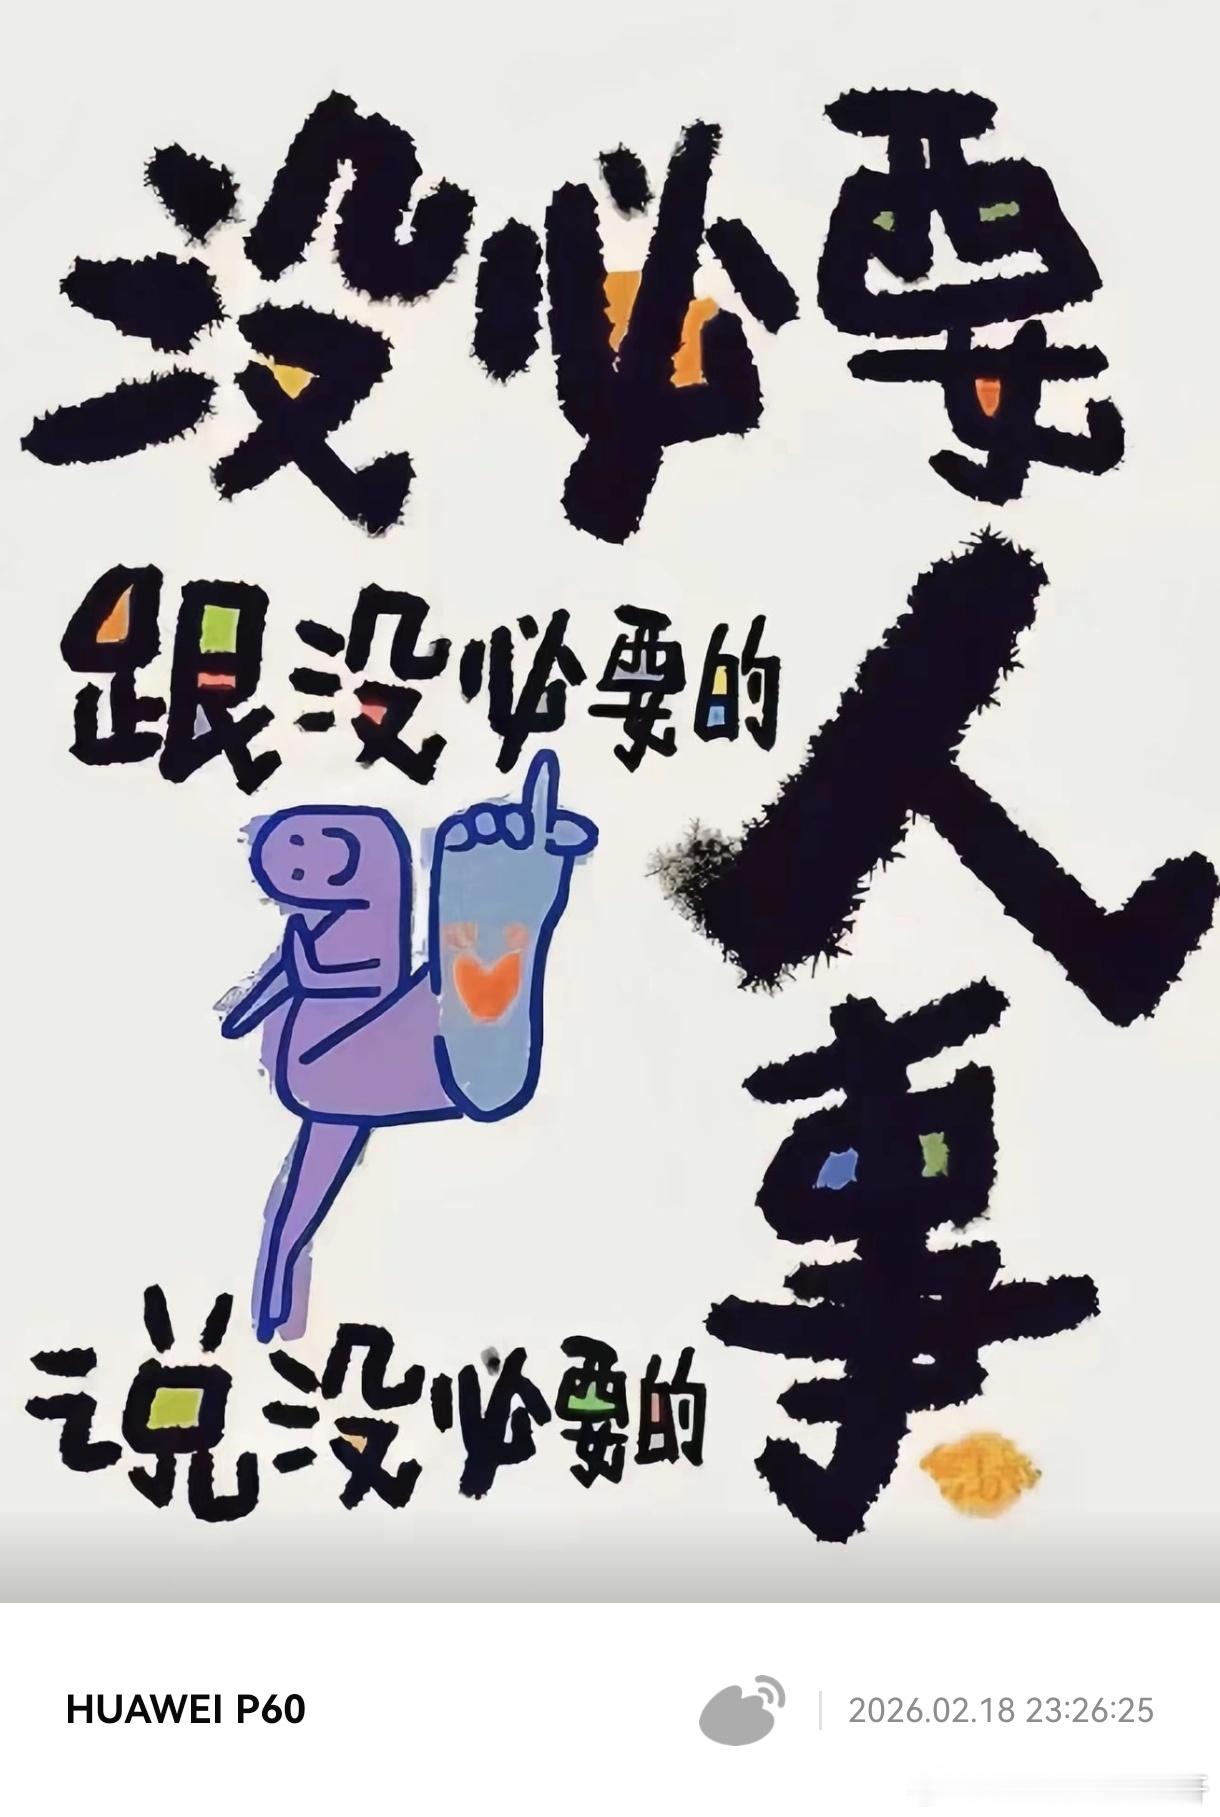 没必要
跟没必要的
人
说没必要的
事
HUAWEI P60
2026.02.18 23:26:25